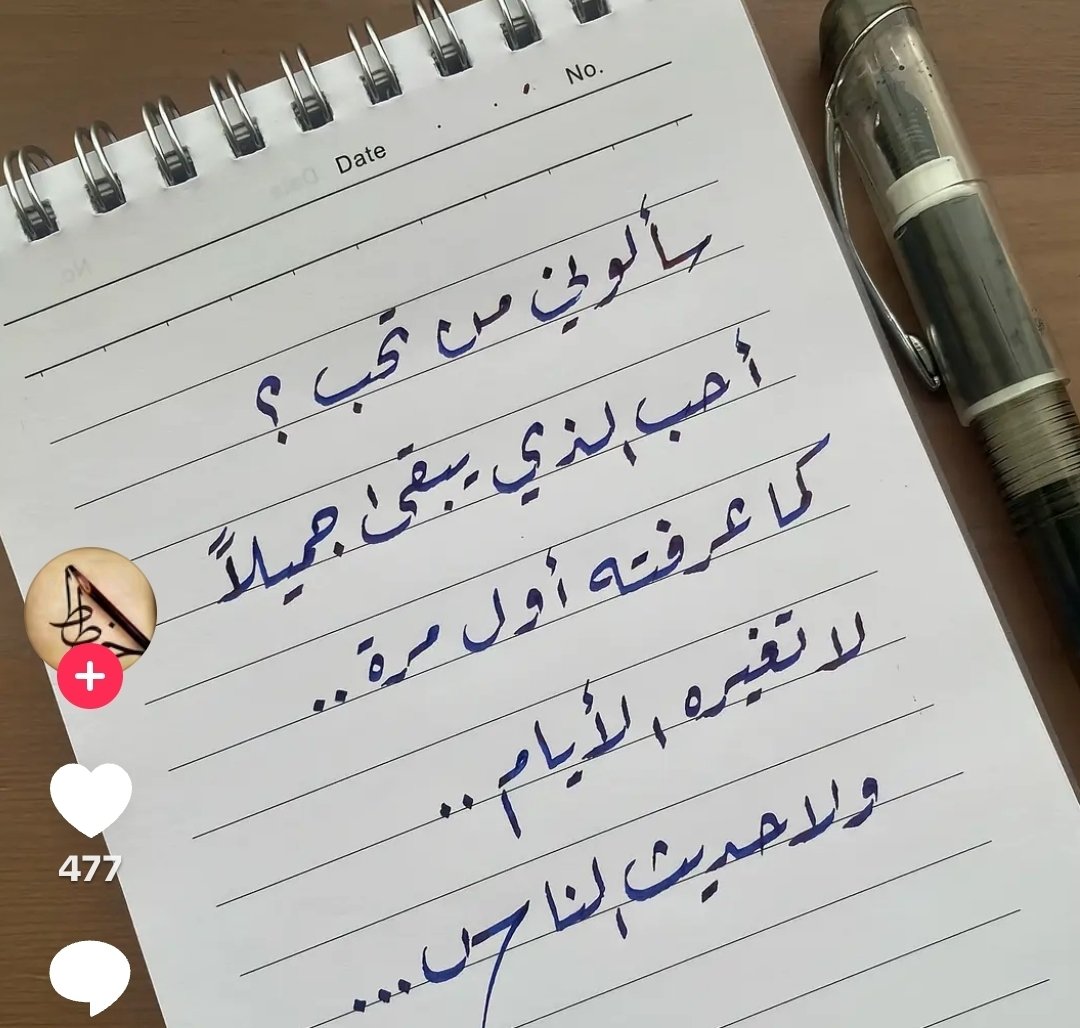 No.
Date
سألوني من تحب ؟
أحب الذي يبقى جميلاً
كما عرفته أول مرة ..
لا تغيره الأيام ..
ولا حديث الناس ...
477